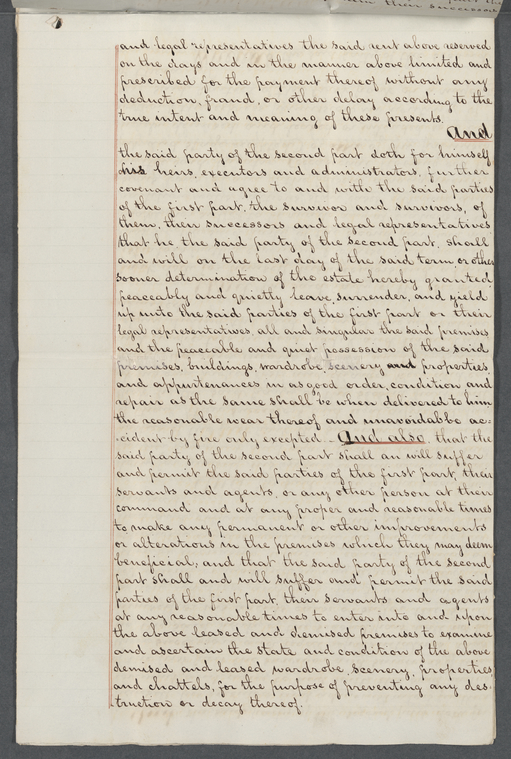 their successors
and legal representatives the said rent above reserved
on the days and in the manner above limited and
prescribed for the payment thereof without any
deduction, fraud, or other delay according to the
true intent and meaning of these presents.
And
the said party of the second part doth for himself
his heirs, executors and administrators, further
covenant and agree to and with the said parties
of the first part, the survivor and survivors, of
them, their successors and legal representatives
that he, the said party of the second part, shall
and will on the last day of the said term or other
sooner determination of the estate hereby granted
peaceably and quietly leave, surrender, and yield
up unto the said parties of the first part or their
legal representatives, all and singular the said premises
and the peaceable and quiet possession of the said
premises, buildings, wardrobe, scenery and properties,
and appurtenances in as good order, condition and
repair as the same shall be when delivered to him
the reasonable wear thereof and unavoidable ac-
cident by fire only excepted - And also, that the
said party of the second part shall an will suffer
and permit the said parties of the first part, their
servants and agents, or any other person at their
command and at any proper and reasonable times
to make any permanent or other improvements
or alterations in the premises which they may deem
beneficial, and that the said party of the second
part shall and will suffer and permit the said
parties of the first part their servants and agents
at any reasonable times to enter into and upon
the above leased and demised premises to examine
and ascertain the state and condition of the above
demised and leased wardrobe, scenery, properties,
and chattels, for the purpose of preventing any des-
truction or decay thereof.